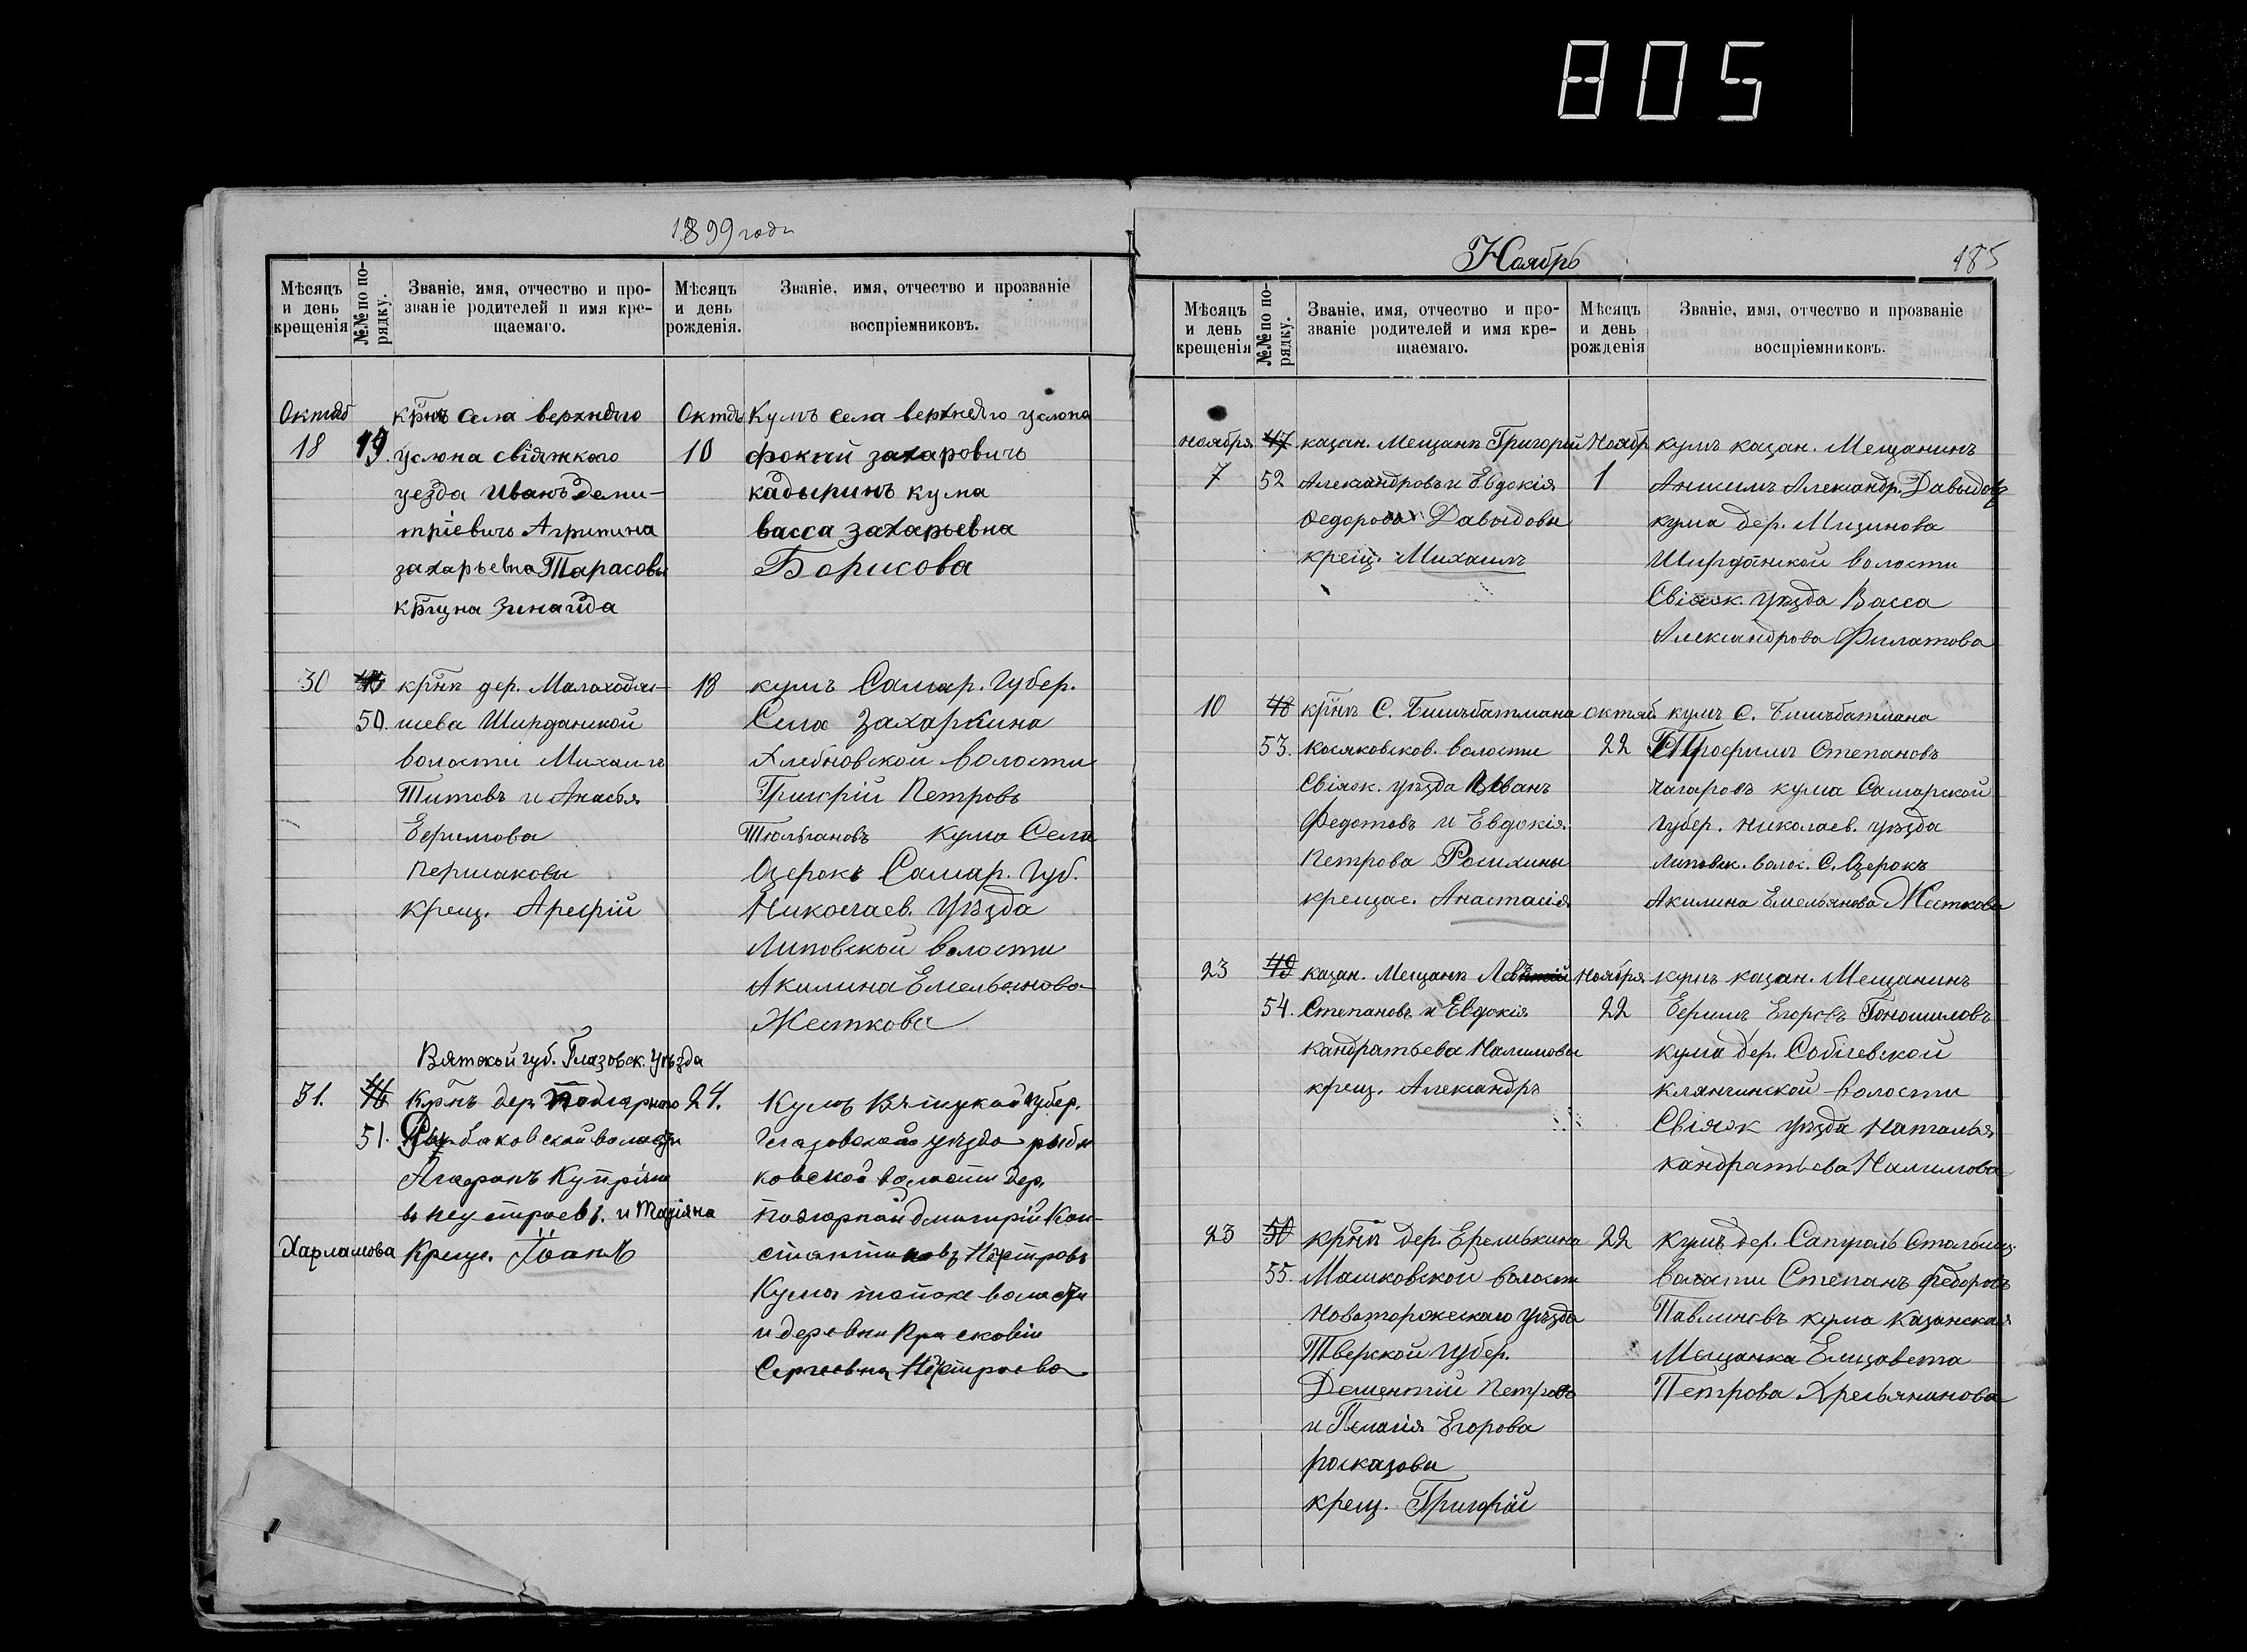 805
1899 годъ
Мѣсяцъ и день крещенія
№№ по порядку.
Званіе, имя, отчество и прозваніе родителей и имя крещаемаго.
Мѣсяцъ и день рожденія.
Званіе, имя, отчество и прозваніе воспріемниковъ.
Октяб
18
19.
крнъ села верхнего
услона свіяжкого
уезда Иванъ деми-
тріевичъ Агрипина
захарьевна Тарасовы
крщна Зинаіда
Октяб
10
Кумъ села верхнего услона
фокий захаровичъ
кадыринъ кума
васса захарьевна
Борисова
30
50.
крнъ дер.
шева Ширданской
волости Михаилъ
Титовъ и Анасья
Ефимова
Першаковы
крещ. Арефій
18
кумъ Самар. Губер.
Села Захаркина
Хлебновской волости
Григорій Петровъ
кума Села
Озерокъ Самар. Губ.
Николаев. Уѣзда
Липовской волости
Акилина Емельянова
Жесткова
Вятской губ. Глазовск. Уѣзда
31.
46
51.
Крнъ дер. Подгорного
Рыбаковской воласти
Агафонъ Купріян
въ Неустроевъ. и Татіяна
Харламова Креще. Іоанъ
24.
Кумъ Вятцкой губер.
Глазовскаго уезда рыба
ковской воласти дер.
подгорной Димитрій Кон-
стантиновъ Неустровъ
Кума тойже воласти
и деревни Прасковія
Сергеевна Неустроева
Ноябрь
185
Мѣсяцъ и день крещенія
№№ по порядку.
Званіе, имя, отчество и прозваніе родителей и имя крещаемаго.
Мѣсяцъ и день рожденія
Званіе, имя, отчество и прозваніе воспріемниковъ.
ноября
7
47
52
казан. Мещанъ Григорій
Александровъ и Евдокія
Федорова Давыдовы
крещ. Михаилъ
Ноябр
1
кумъ казан. Мещанинъ
Анисимъ Александр. Давыдовъ
кума дер. Мизинова
Ширданской волости
Свіяж. Уѣзда Васса
Александрова Филатова
10
48
53.
крнъ С. Бишъбатмана
косяковсков. волости
Свіяж. уѣзда Иванъ
Федотовъ и Евдокія
Петрова
крещае. Анастасія
октяб.
22
кумъ С. Бишъбатмана
Трофимъ Степановъ
Чагаровъ кума Самарской
Губер. Николаев. уѣзда
Липовск. волос. С. Озерокъ
Акилина Емельянова Жесткова
23
49
54.
казан. Мещанъ
Степановъ и Евдокія
кандратьева Налимовы
крещ. Александръ
Ноября
22
кумъ казан. Мещанинъ
Ефимъ Егоровъ
кума дер.
клянчинской волости
Свіяж уѣзда Наталья
кандратьева Налимова
23
50
55.
крнъ дер. Еремькина
Машковской волости
Новоторжескаго Уѣзда
Тверской губер.
Дементій Петровъ
и Пелагія Егорова
росказовы
крещ. Григорій
22
Кумъ дер.
волости Степанъ Федоровъ
Павлиновъ кума Казанская
Мещанка Елизавета
Петрова Хрельянинова